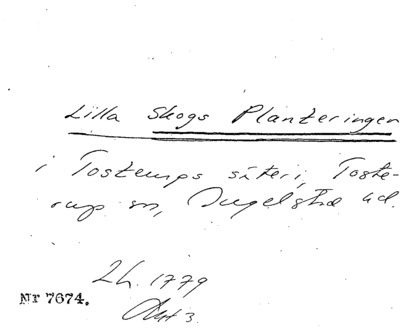 Lilla Skogs Planteringen
i Tostemps säteri, Toste-
rup sn, Ingelstad hd.
Lh. 1779
Nr 7674.
Akt 3.